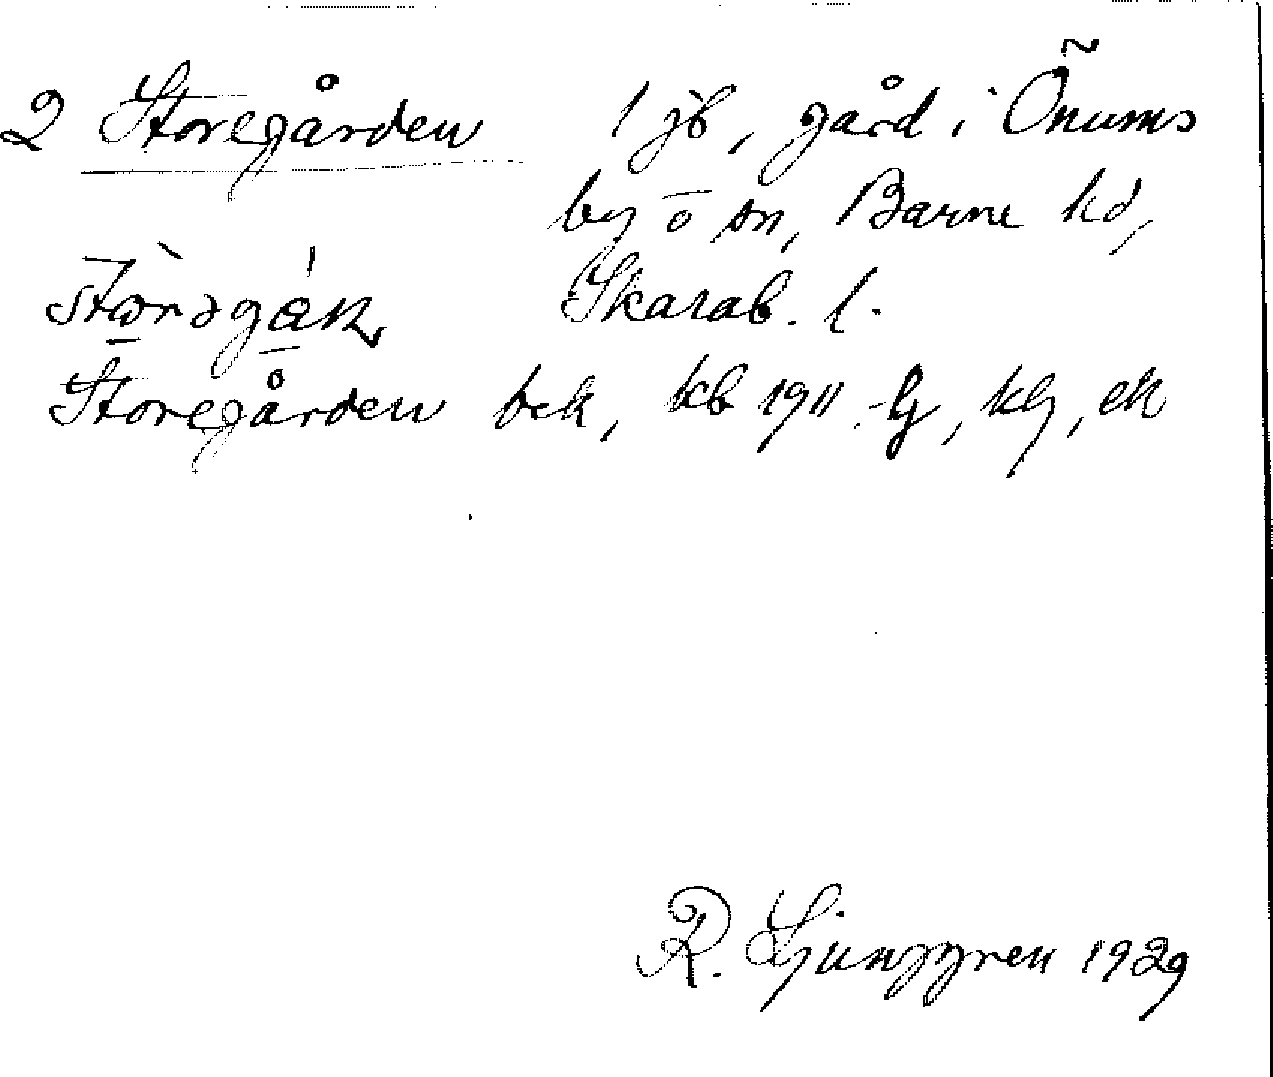 2 Storegården 1 jb, gård i Önums
by o sn, Barne hd,
Skarab. l.
Storegården bek, kb 1911
R. Ljunggren 1929